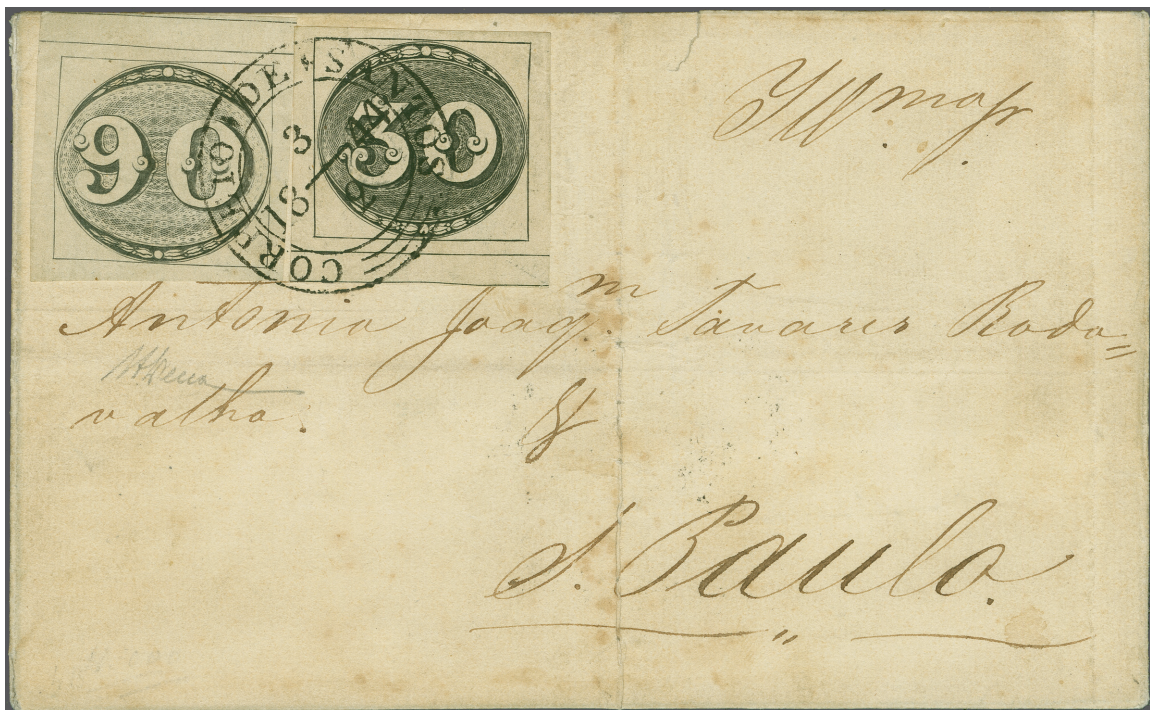 90
30
CORREIO DE SANTOS
3
18 - 7 44
Illmo Sr
Antonio Joaqm Tavares Rodo=
valho.
S. Paulo.